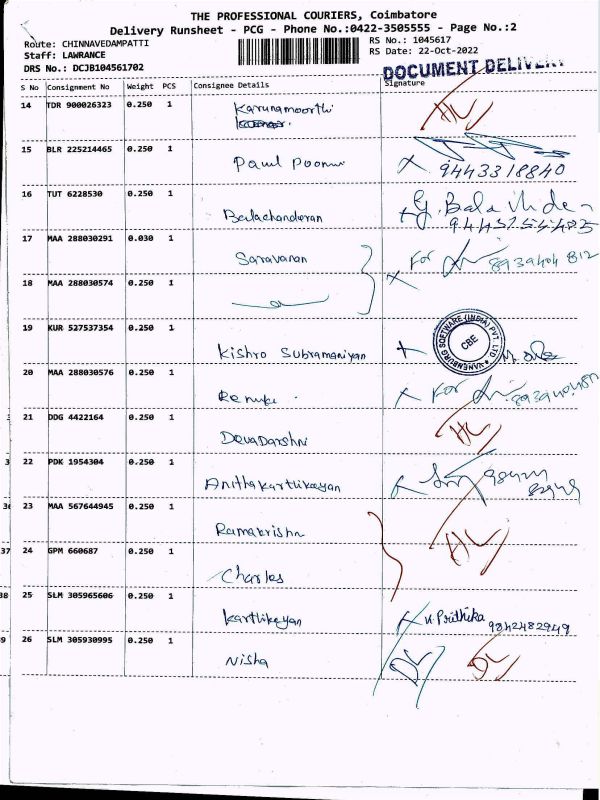 THE PROFESSIONAL COURIERS, Coimbatore
Delivery Runsheet - PCG - Phone No.:0422-3505555 - Page No.:2
Route: CHINNAVEDAMPATTI
RS No.: 1045617
Staff: LAWRANCE
RS Date: 22-Oct-2022
DRS No.: DCJB104561702
DOCUMENT DELIVERY
S No Consignment No Weight PCS Consignee Details Signature
14 TDR 900026323 0.250 1 Karunamoorthi
15 BLR 225214465 0.250 1 Paul
9443318840
16 TUT 6228530 0.250 1 Balachanderan G. Bala
17 MAA 288030291 0.030 1 Saravanan For 8939404812
18 MAA 288030574 0.250 1
19 KUR 527537354 0.250 1 Kishro Subramaniyan
VANENBURG SOFTWARE (INDIA) PVT. LTD
CBE
20 MAA 288030576 0.250 1 Renuka For
21 DDG 4422164 0.250 1 Devadarshni
22 PDK 1954304 0.250 1 Anithakarthikeyan
23 MAA 567644945 0.250 1 Ramakrishna
24 GPM 660687 0.250 1 Charles
25 SLM 305965606 0.250 1 Karthikeyan Prithika 9842482949
26 SLM 305930995 0.250 1 Nisha DL DL